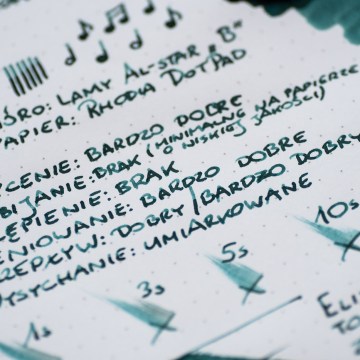 ÓRO: LAMY AL-STAR "B"
PAPIER: RHODIA DOTPAD
YCENIE: BARDZO DOBRE
BIJANIE: BRAK (MINIMALNE NA PAPIERZE
O NISKIEJ JAKOŚCI)
EPIENIE: BRAK
ENIOWANIE: BARDZO DOBRE
RZEPŁYW: DOBRY/BARDZO DOBRY
YSYCHANIE: UMIARKOWANE
1s
3s
5s
10s